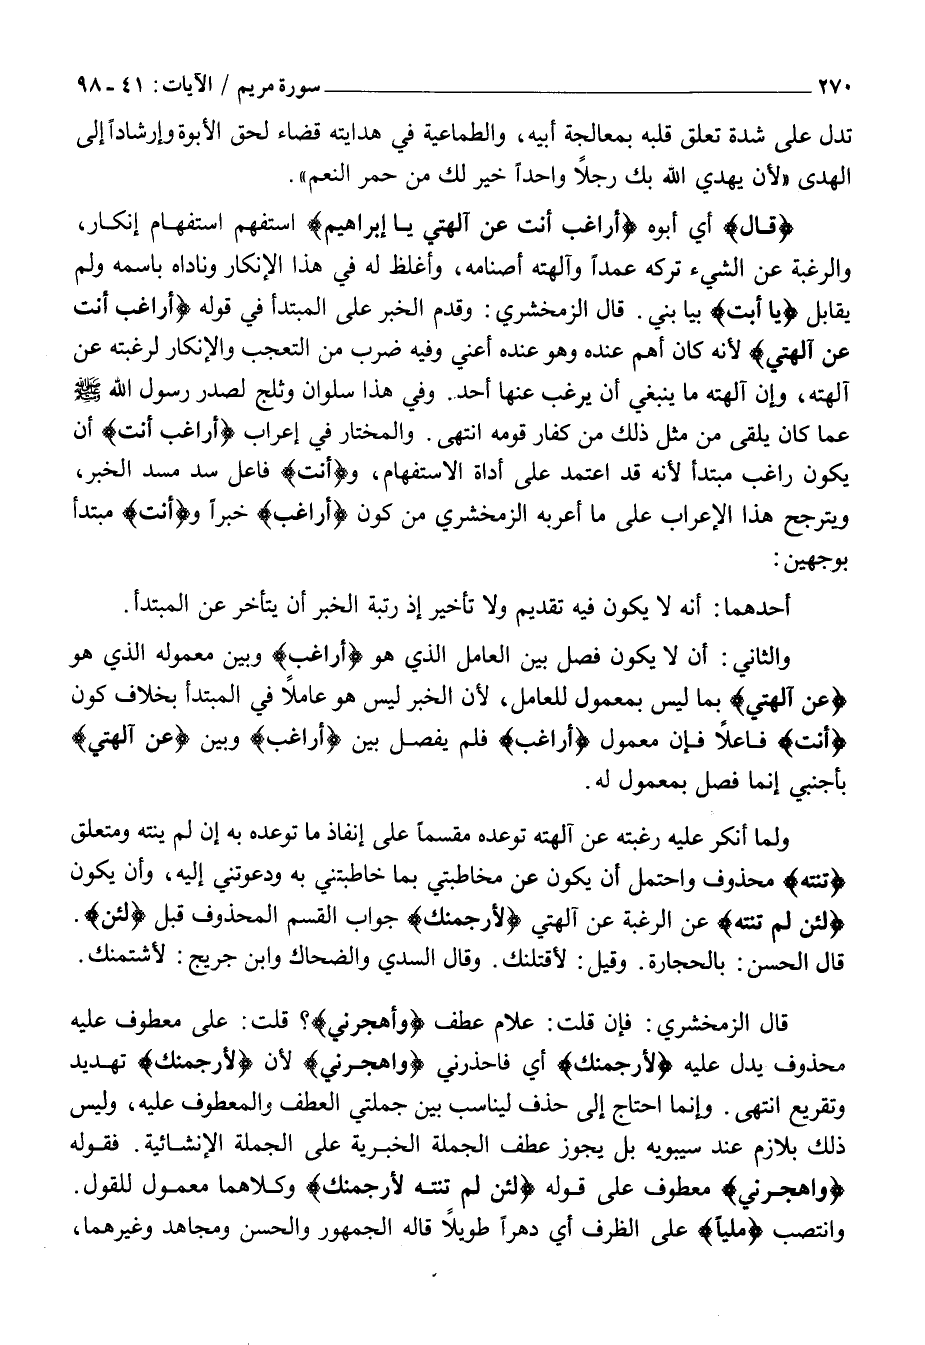 ٢٧٠ ــــــــــــــــــــــــــــــــــــــــــــــــــــــــــــــــ سورة مريم / الآيات : ٤١ ـ ٩٨
تدل على شدة تعلق قلبه بمعالجة أبيه، والطماعية في هدايته قضاء لحق الأبوة وإرشاداً إلى
الهدى «لأن يهدي الله بك رجلاً واحداً خير لك من حمر النعم».
﴿قـال﴾ أي أبوه ﴿أراغب أنت عن آلهتي يـا إبراهيم﴾ استفهم استفهـام إنكـار،
والرغبة عن الشيء تركه عمداً وآلهته أصنامه، وأغلظ له في هذا الإنكار وناداه باسمه ولم
يقابل ﴿يا أبت﴾ بيا بني. قال الزمخشري: وقدم الخبر على المبتدأ في قوله ﴿أراغب أنت
عن آلهتي﴾ لأنه كان أهم عنده وهو عنده أعني وفيه ضرب من التعجب والإنكار لرغبته عن
آلهته، وإن آلهته ما ينبغي أن يرغب عنها أحد. وفي هذا سلوان وثلج لصدر رسول الله ﷺ
عما كان يلقى من مثل ذلك من كفار قومه انتهى. والمختار في إعراب ﴿أراغب أنت﴾ أن
يكون راغب مبتدأ لأنه قد اعتمد على أداة الاستفهام، و﴿أنت﴾ فاعل سد مسد الخبر،
ويترجح هذا الإعراب على ما أعربه الزمخشري من كون ﴿أراغب﴾ خبراً و﴿أنت﴾ مبتدأ
بوجهين:
أحدهما: أنه لا يكون فيه تقديم ولا تأخير إذ رتبة الخبر أن يتأخر عن المبتدأ.
والثاني: أن لا يكون فصل بين العامل الذي هو ﴿أراغب﴾ وبين معموله الذي هو
﴿عن آلهتي﴾ بما ليس بمعمول للعامل، لأن الخبر ليس هو عاملاً في المبتدأ بخلاف كون
﴿أنت﴾ فـاعلاً فـإن معمول ﴿أراغب﴾ فلم يفصـل بين ﴿أراغب﴾ وبين ﴿عن آلهتي﴾
بأجنبي إنما فصل بمعمول له.
ولما أنكر عليه رغبته عن آلهته توعده مقسماً على إنفاذ ما توعده به إن لم ينته ومتعلق
﴿تنته﴾ محذوف واحتمل أن يكون عن مخاطبتي بما خاطبتني به ودعوتني إليه، وأن يكون
﴿لئن لم تنته﴾ عن الرغبة عن آلهتي ﴿لأرجمنك﴾ جواب القسم المحذوف قبل ﴿لئن﴾.
قال الحسن: بالحجارة. وقيل: لأقتلنك. وقال السدي والضحاك وابن جريج: لأشتمنك.
قال الزمخشري: فإن قلت: علام عطف ﴿وأهجرني﴾؟ قلت: على معطوف عليه
محذوف يدل عليه ﴿لأرجمنك﴾ أي فاحذرني ﴿واهجـرني﴾ لأن ﴿لأرجمنك﴾ تهـديد
وتقريع انتهى. وإنما احتاج إلى حذف ليناسب بين جملتي العطف والمعطوف عليه، وليس
ذلك بلازم عند سيبويه بل يجوز عطف الجملة الخبـرية على الجملة الإنشـائية. فقـوله
﴿واهجـرني﴾ معطوف على قـوله ﴿لئن لم تنتـه لأرجمنك﴾ وكـلاهما معمـول للقول.
وانتصب ﴿ملياً﴾ على الظرف أي دهراً طويلاً قاله الجمهور والحسن ومجاهد وغيرهما،